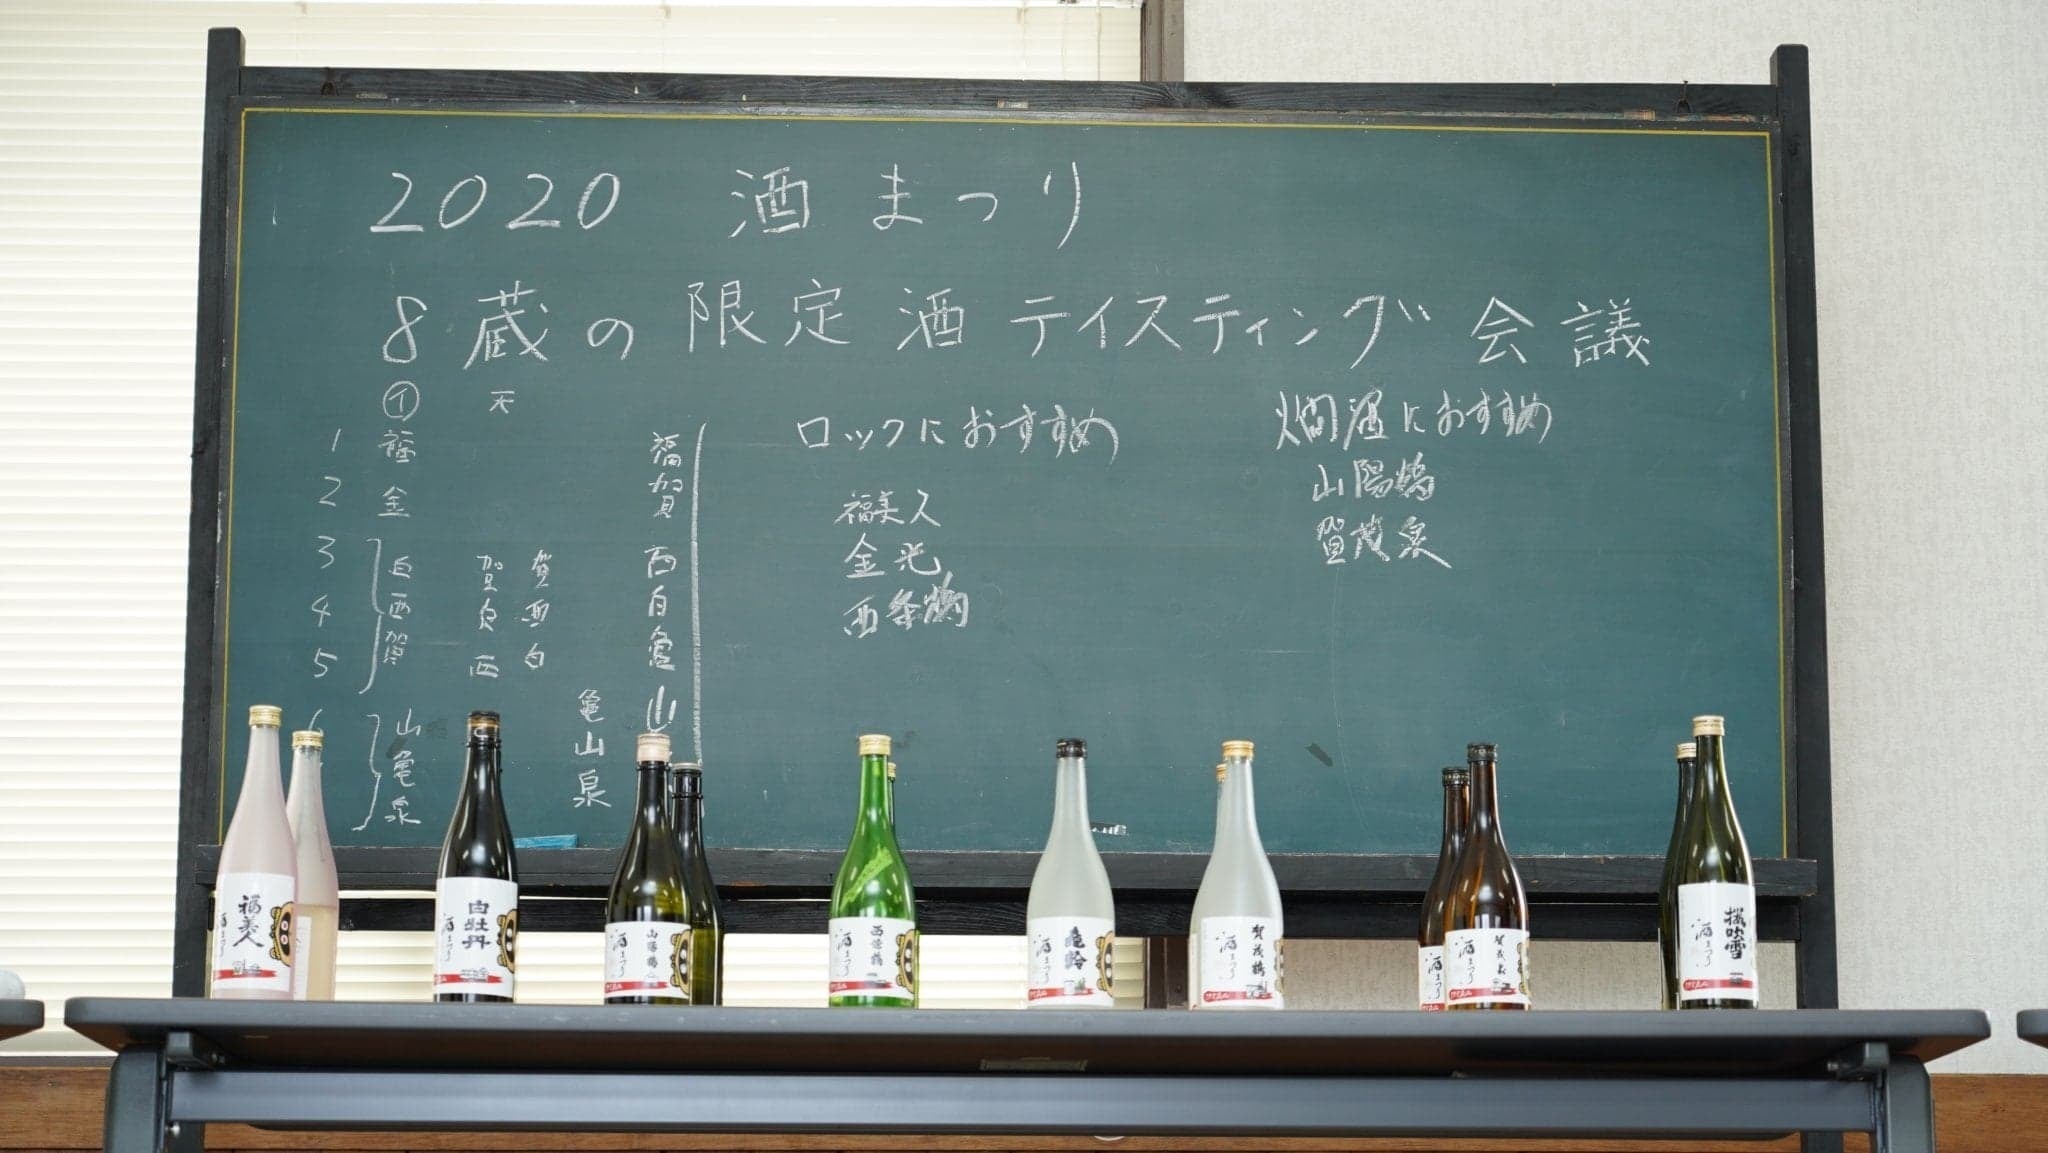 2020 酒まつり
8蔵の限定酒テイスティング会議
① 天
1 福
2 金
3 白
4 西
5 賀
山
亀
泉
賀西白
亀
山
泉
福
賀
西
白
亀
山
ロックにおすすめ
福美人
金光
西条鶴
燗酒におすすめ
山陽鶴
賀茂泉
福美人
酒まつり
白牡丹
酒まつり
山陽鶴
酒まつり
西條鶴
酒まつり
亀齢
酒まつり
賀茂鶴
酒まつり
酒まつり
賀茂泉
酒まつり
桜吹雪
酒まつり